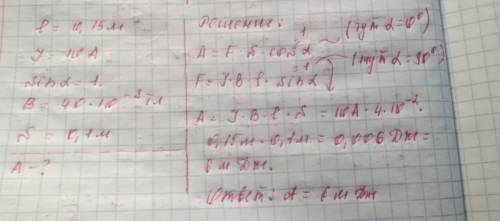 l = 0,15 м
I = 10 А
sin α = 1.
B = 40 · 10⁻³ Тл
S = 0,1 м
A - ?
Решение:
A = F · S · cos α (тут α = 0°)
1
F = I · B · l · sin α (тут α = 90°)
1
A = I · B · l · S = 10 А · 4 · 10⁻² ·
0,15 м · 0,1 м = 0,006 Дж =
6 м Дж
Ответ: A = 6 м Дж